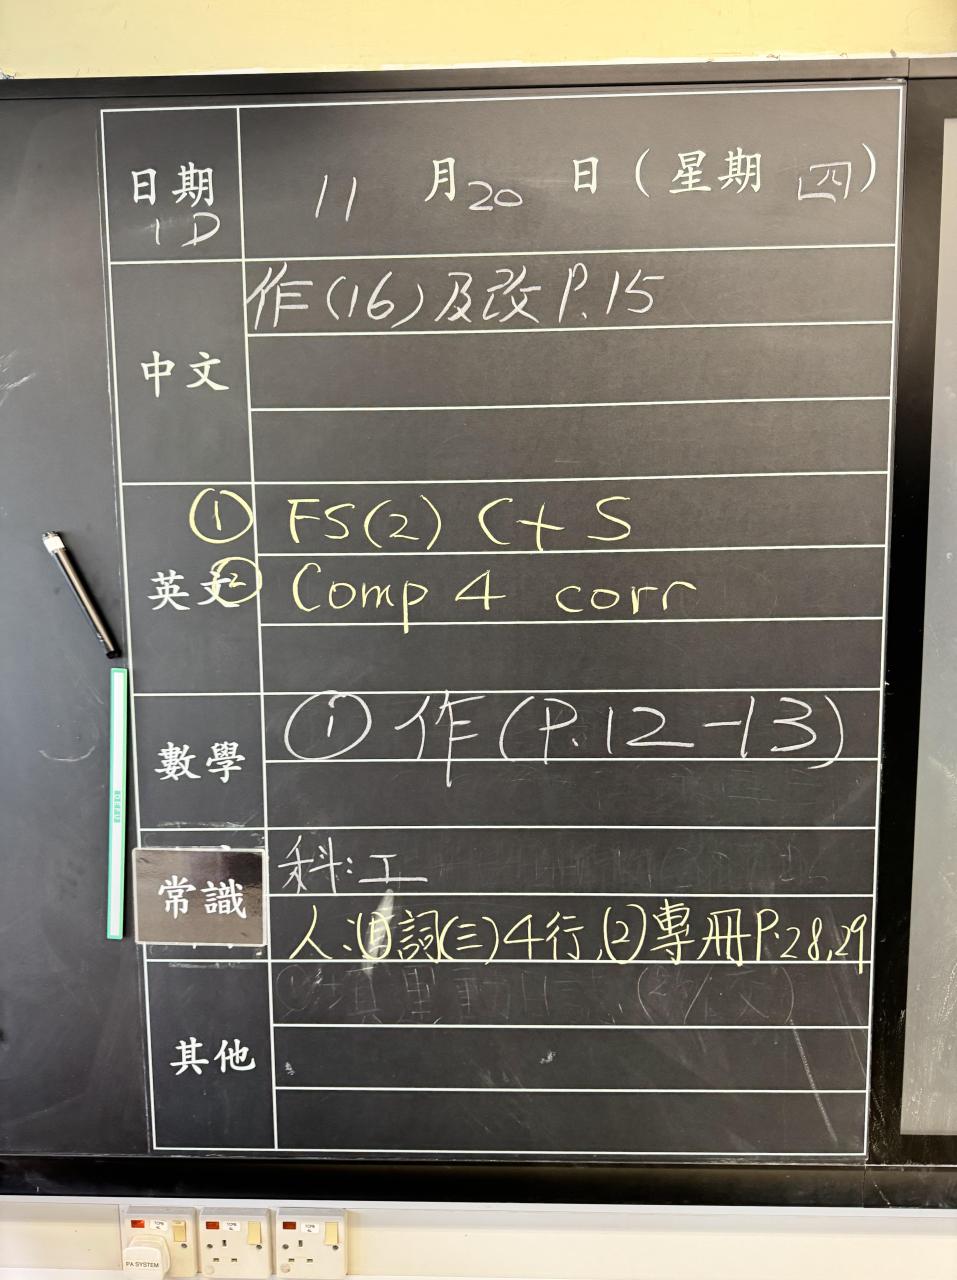 日期 11 月 20 日 ( 星期 四 )
1D
中文 作(16)及改P.15
英文 ① FS(2) C+S
② Comp 4 corr
數學 ① 作(P.12-13)
常識 科:工
人: 詞(三)4行,(2)專冊P.28,29
其他
PA SYSTEM